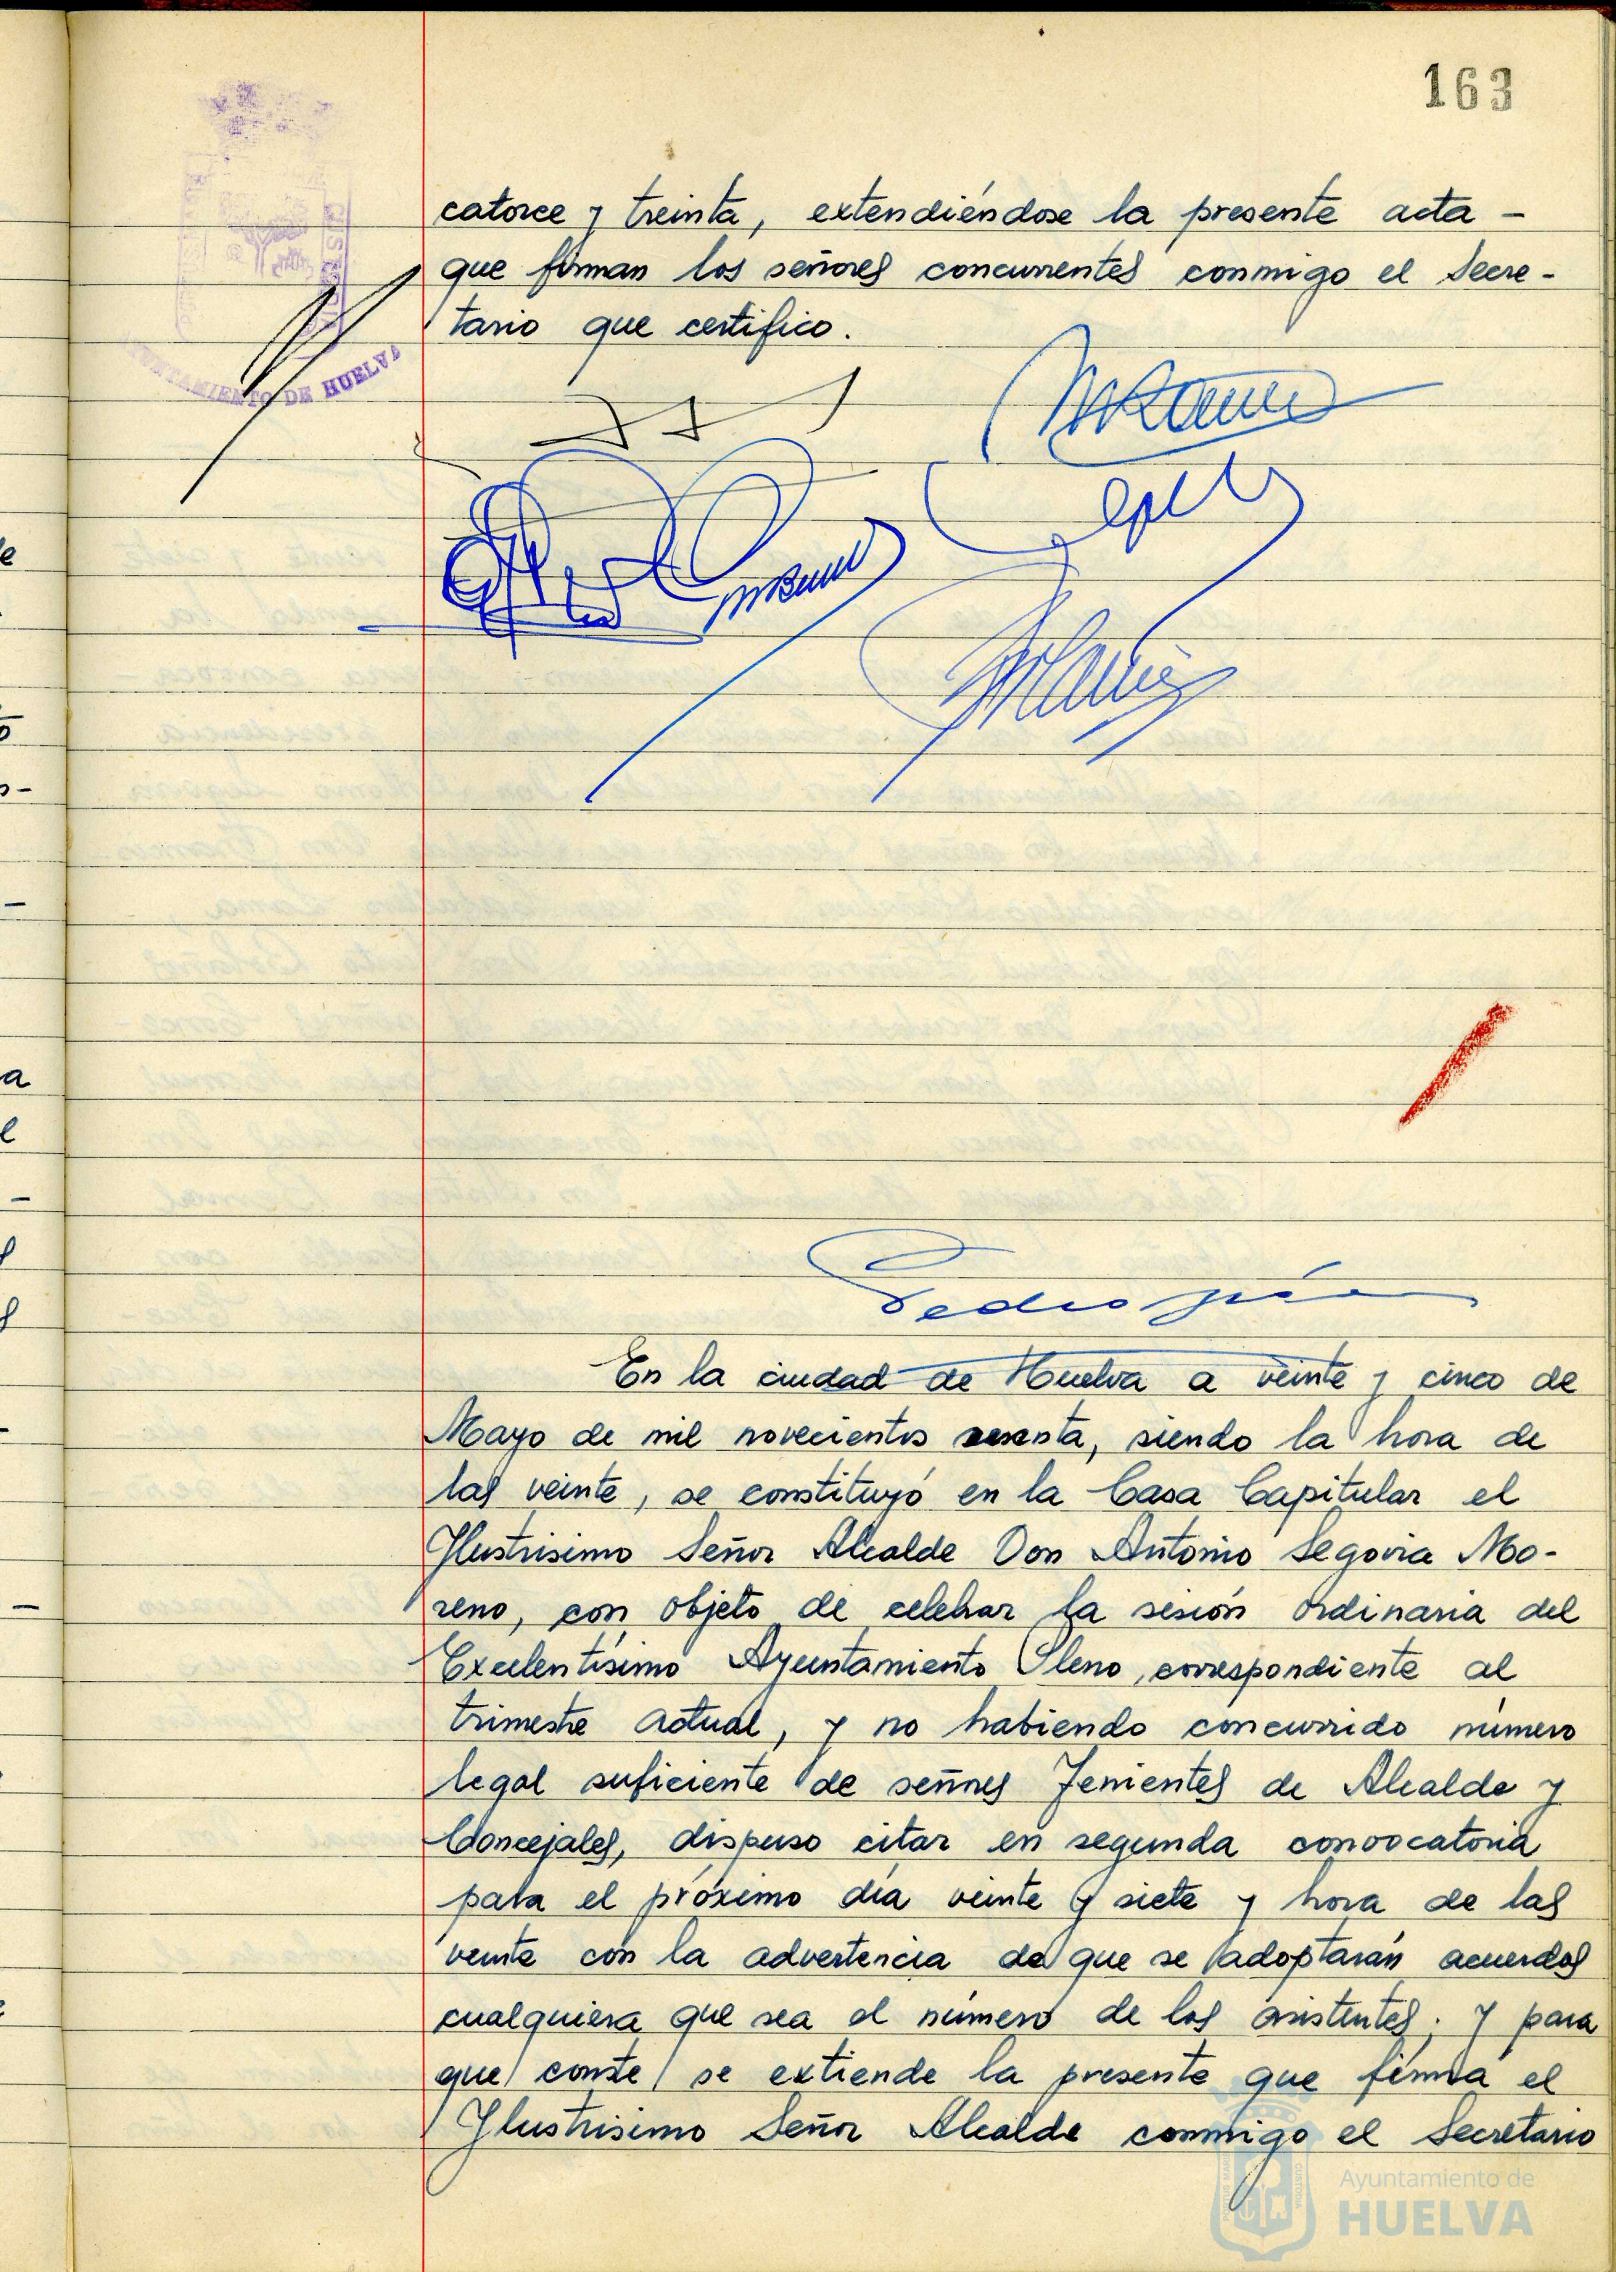 163
catorce y treinta, extendiéndose la presente acta -
que firman los señores concurrentes conmigo el Secre-
tario que certifico.
AYUNTAMIENTO DE HUELVA
Pedro
En la ciudad de Huelva a veinte y cinco de
Mayo de mil novecientos sesenta, siendo la hora de
las veinte, se constituyó en la Casa Capitular el
Ilustrisimo Señor Alcalde Don Antonio Segovia Mo-
reno, con objeto de celebrar la sesión ordinaria del
Excelentísimo Ayuntamiento Pleno, correspondiente al
trimestre actual, y no habiendo concurrido número
legal suficiente de señores Tenientes de Alcalde y
Concejales, dispuso citar en segunda convocatoria
para el próximo día veinte y siete y hora de las
veinte con la advertencia de que se adoptarán acuerdos
cualquiera que sea el número de los asistentes; y para
que conste se extiende la presente que firma el
Ilustrisimo Señor Alcalde conmigo el Secretario
Ayuntamiento de
HUELVA